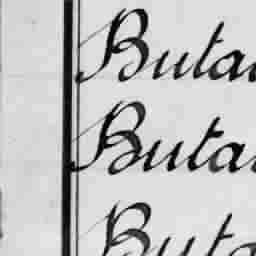 Buta
Buta
Buta